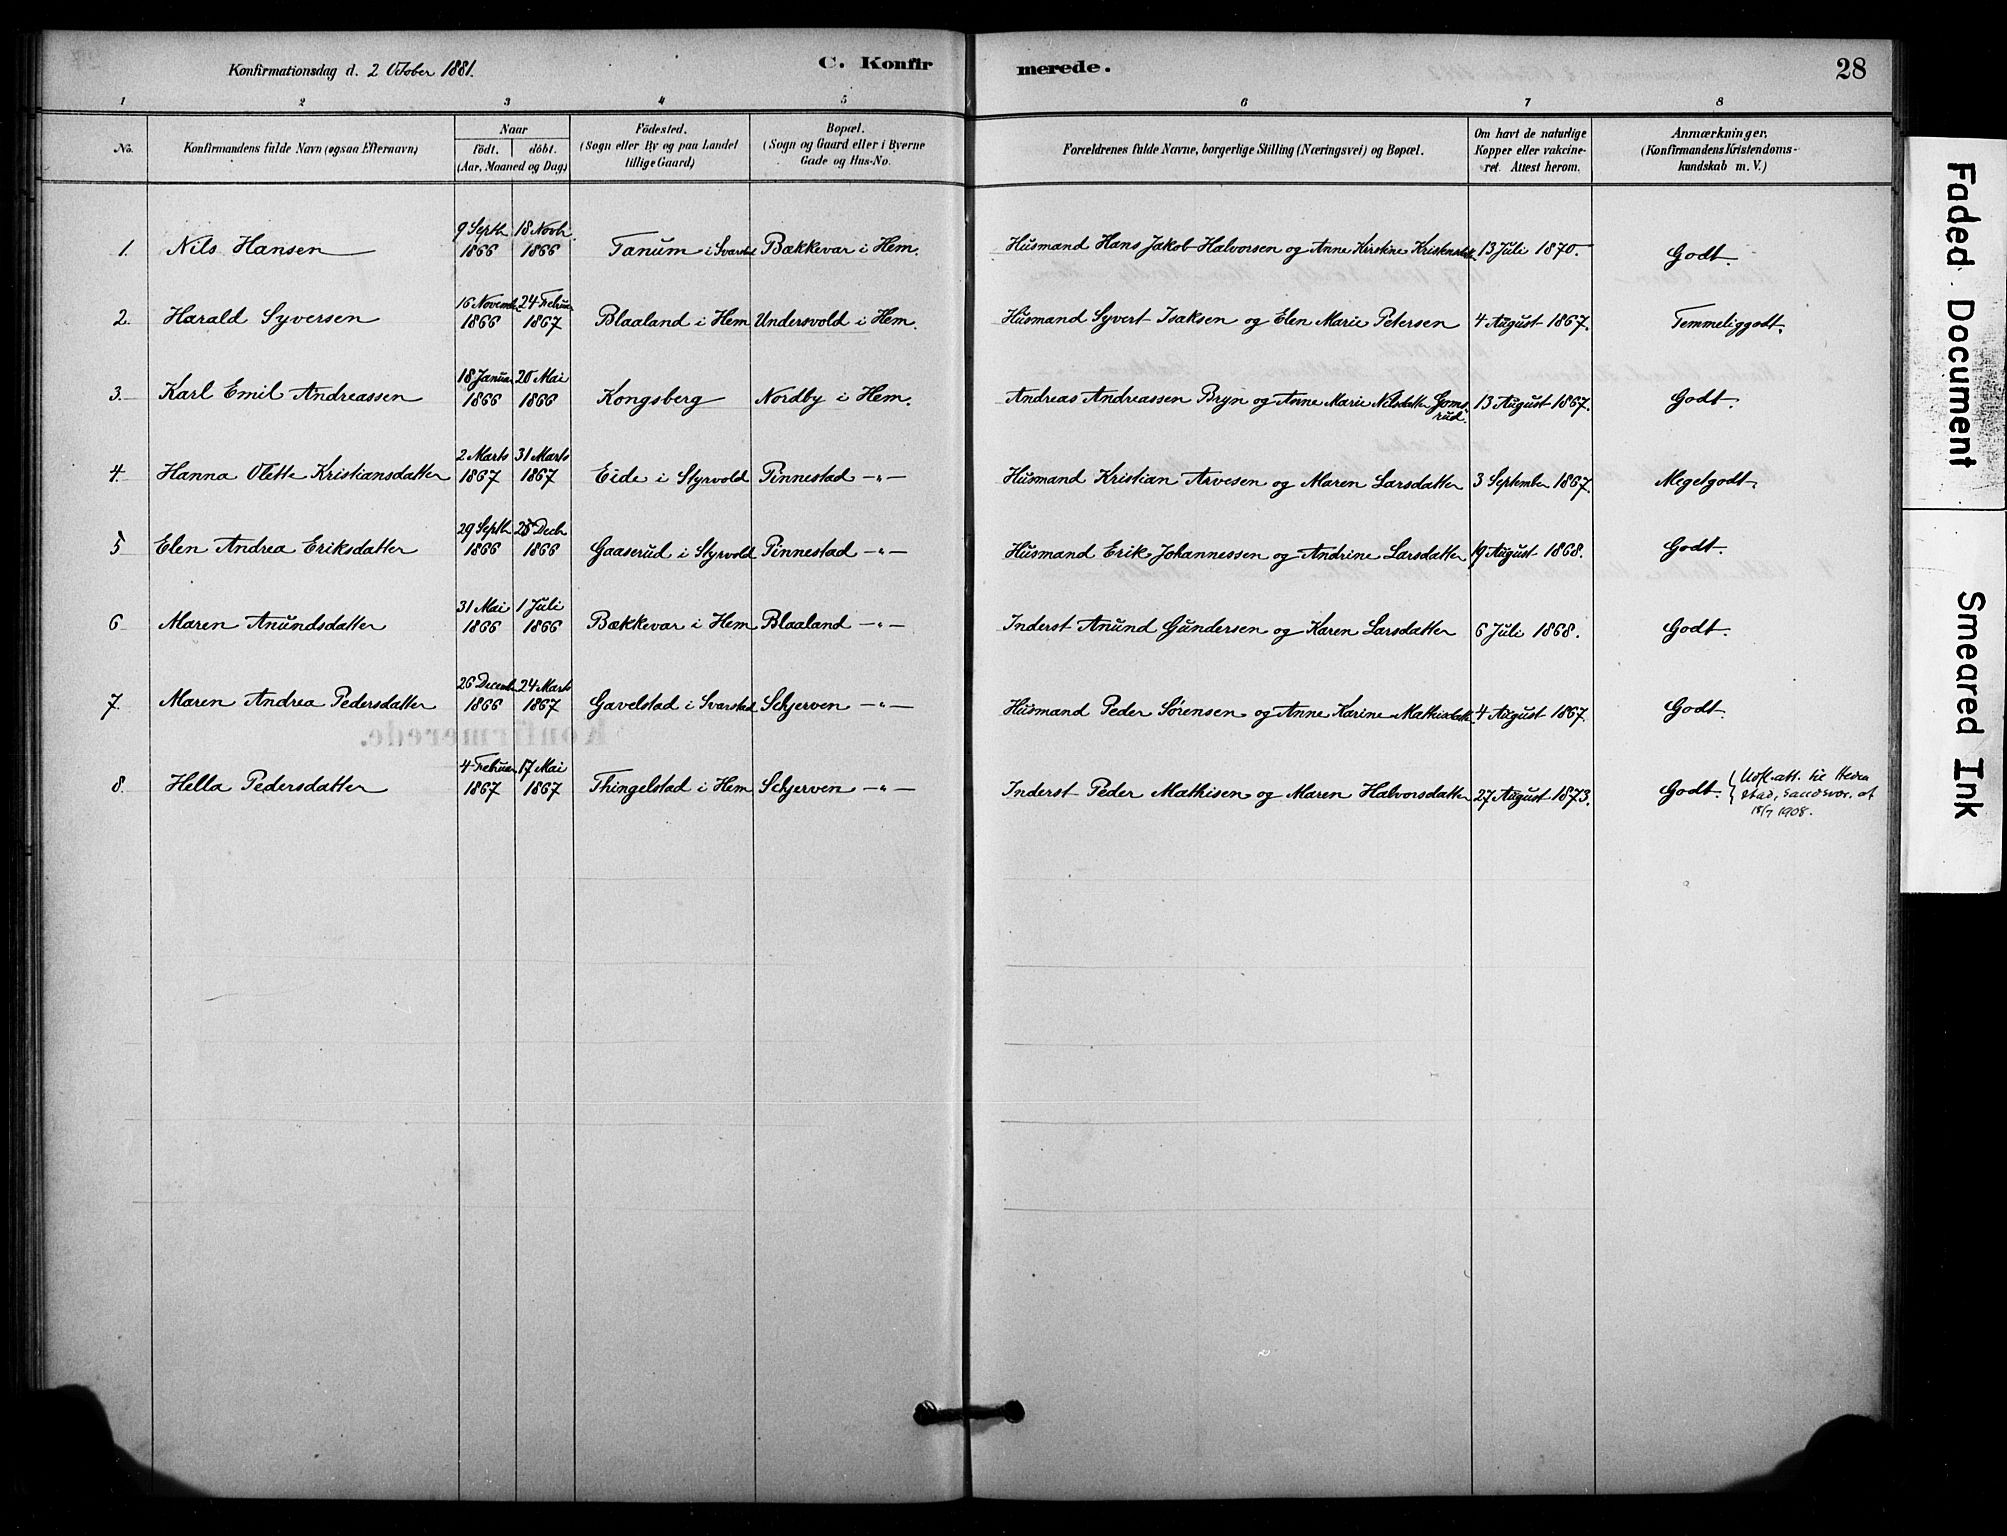 Konfirmationsdag d. 2 October 1881.
C. Konfir
merede.
28
1 2 3 4 5 6 7 8
No.
Konfirmandens fulde Navn (ogsaa Efternavn)
Naar
födt. döbt.
(Aar, Maaned og Dag)
Födested.
(Sogn eller By og paa Landet
tillige Gaard)
Bopæl.
(Sogn og Gaard eller i Byerne
Gade og Hus-No.
Forældrenes fulde Navne, borgerlige Stilling (Næringsvei) og Bopæl.
Om havt de naturlige
Kopper eller vakcine-
ret. Attest herom.
Anmærkninger.
(Konfirmandens Kristendoms-
kundskab m. V.)
9 Septb. 18 Novbr.
1. Nils Hansen 1866 1866 Tanum i Svarstad Bækkevar i Hem. Husmand Hans Jakob Halvorsen og Anne Kirstine Kristensdatt. 13 Juli 1870. Godt.
16 Novembr. 24 Februar
2. Harald Syversen 1866 1867 Blaaland i Hem Undersvold i Hem. Husmand Syvert Isaksen og Elen Marie Petersen 4 August 1867. Temmeliggodt.
18 Januar 20 Mai
3. Karl Emil Andreassen 1866 1866 Kongsberg Nordby i Hem. Andreas Andreassen Bryn og Anne Marie Nilsdatter Goms-
rud. 13 August 1867. Godt.
2 Marts 31 Marts
4. Hanna Olette Kristiansdatter 1867 1867 Eide i Styrvold Pinnestad —"— Husmand Kristian Arvesen og Maren Larsdatter 3 September 1867. Megetgodt.
29 Septb. 25 Decbr.
5 Elen Andrea Eriksdatter 1866 1866 Gaaserud i Styrvold Pinnestad —"— Husmand Erik Johannessen og Andrine Larsdatter 19 August 1868. Godt.
31 Mai 1 Juli
6 Maren Anundsdatter 1866 1866 Bækkevar i Hem Blaaland —"— Inderst Anund Gundersen og Karen Larsdatter 6 Juli 1868. Godt.
26 Decembr. 24 Marts
7. Maren Andrea Pedersdatter 1866 1867 Gavelstad i Svarstad Schjerven —"— Husmand Peder Sørensen og Anne Karine Mathisdatt. 4 August 1867. Godt.
4 Februar 17 Mai
8. Hella Pedersdatter 1867 1867 Thingelstad i Hem Schjerven —"— Inderst Peder Mathisen og Maren Halvorsdatter 27 August 1873. Godt. { Utfl.att. til Heden
stad, Sandsvær. af
18/7 1908.
Konfirmerede.
Faded Document
Smeared Ink